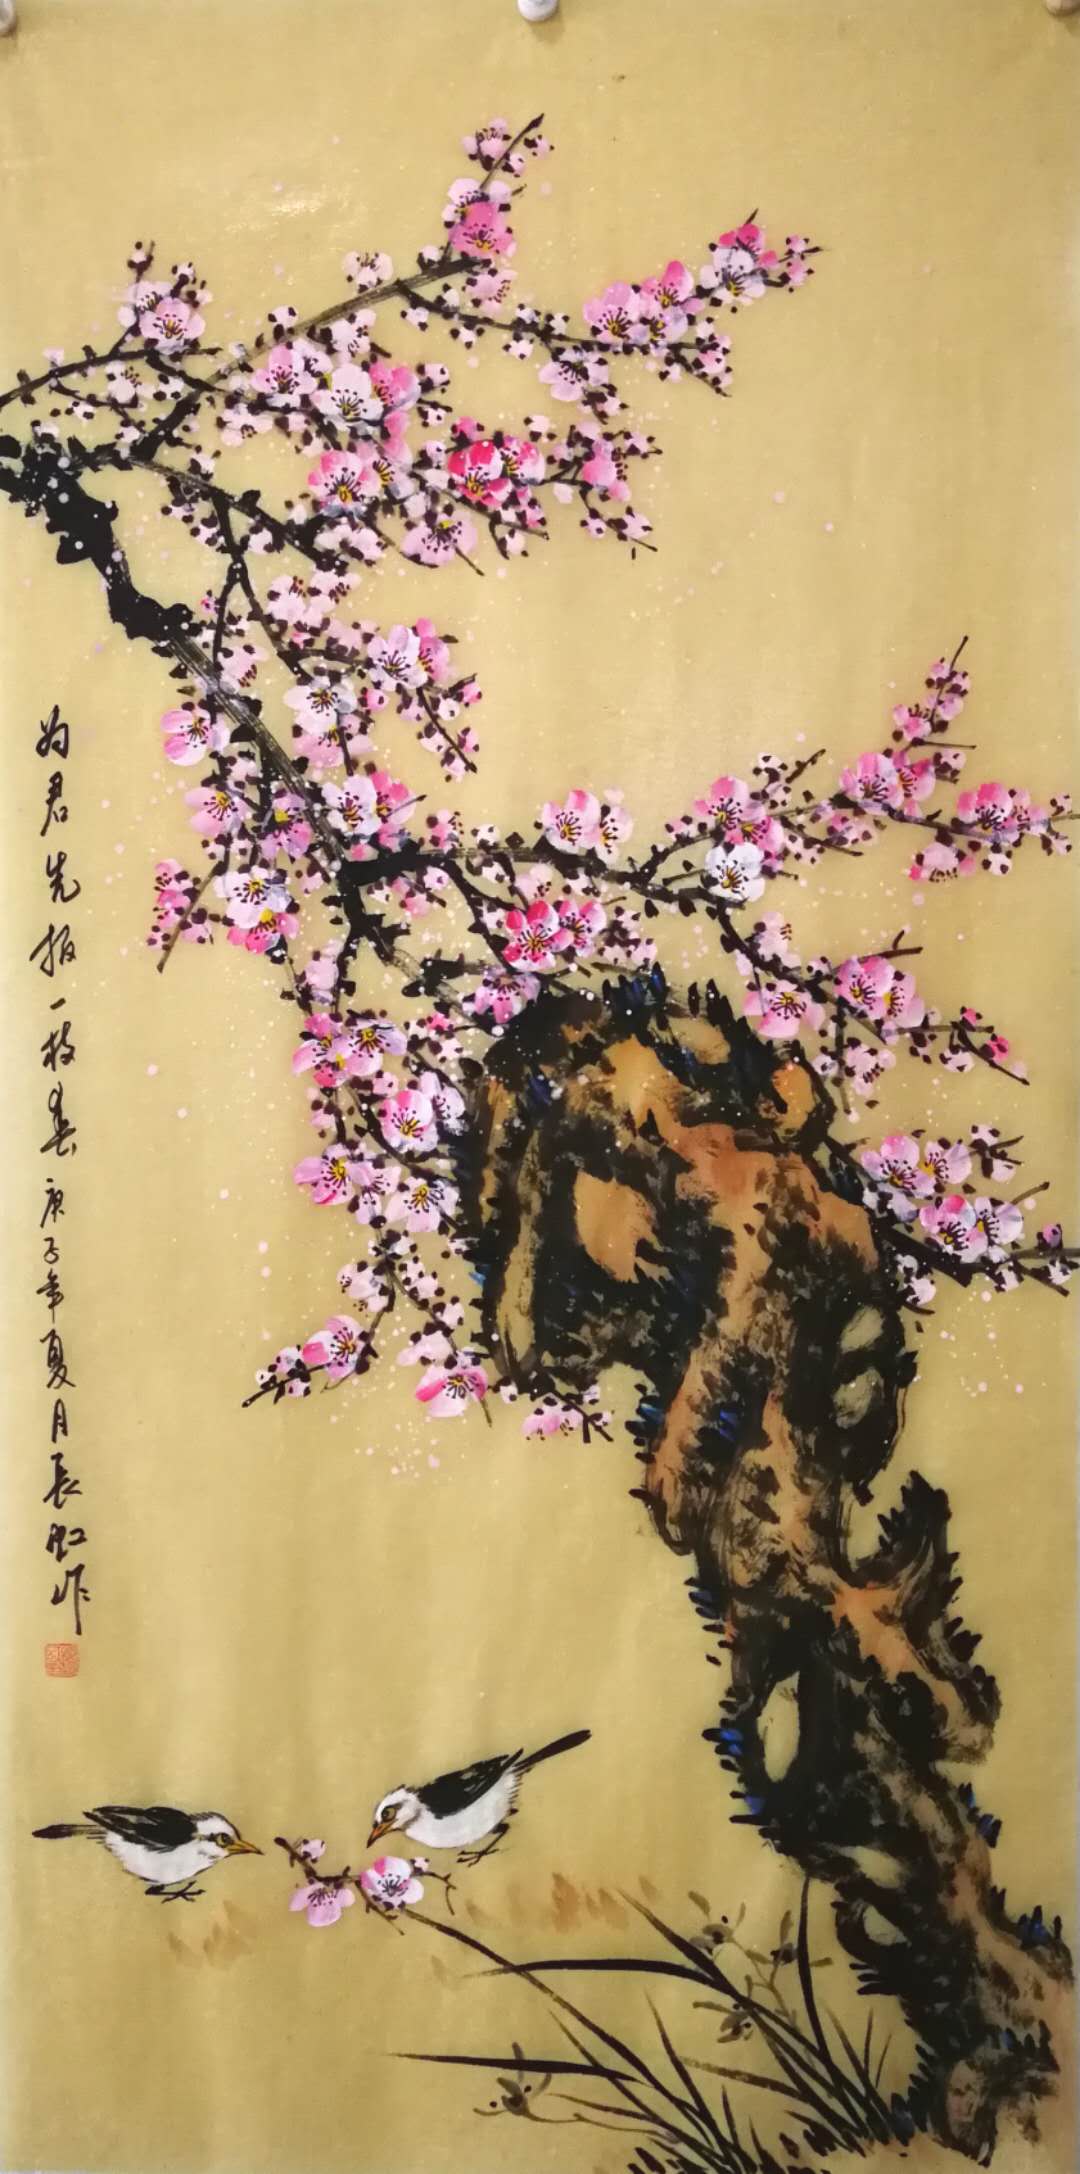 为君先报一枝春 庚子年夏月长虹作